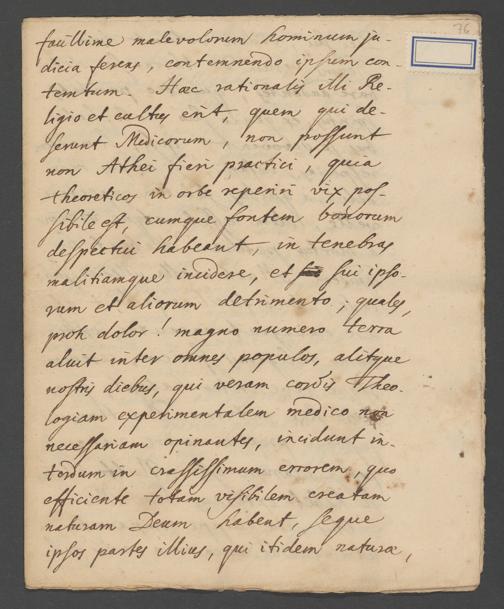 76
facillime malevolorum hominum ju-
dicia ferens, contemnendo ipsum con-
temtum. Hæc rationalis illi Re-
ligio et cultus erit, quem qui de-
serunt Medicorum, non possunt
non Athei fieri practici, quia
theoreticos in orbe reperiri vix pos-
sibile est, cumque fontem bonorum
despectui habeant, in tenebras
malitiamque incidere, et sui ipso-
rum et aliorum detrimento; quales,
proh dolor! magno numero terra
aluit inter omnes populos, alitque
nostris diebus, qui veram cordis Theo-
logiam experimentalem medico non
necessariam opinantes, incidunt in-
terdum in crassissimum errorem, quo
efficiente totam visibilem creatam
naturam Deum habent, seque
ipsos partes illius, qui itidem naturæ,